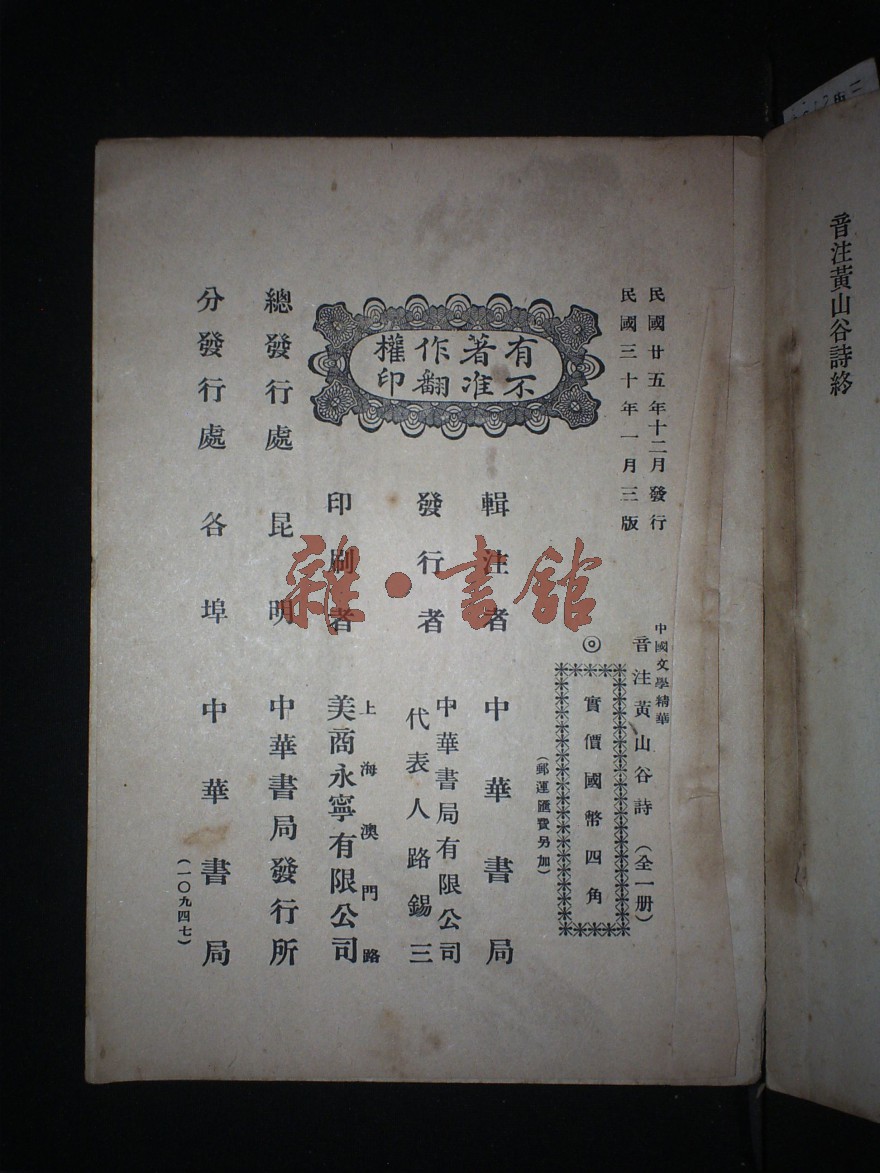 音注黃山谷詩終
民國廿五年十二月發行
民國三十年一月三版
中國文學精華
音注黃山谷詩（全一册）
◎
實價國幣四角
（郵運匯費另加）
有著作權
不准翻印
輯注者 中華書局
發行者 中華書局有限公司
代表人路錫三
印刷者 上海澳門路
美商永寧有限公司
總發行處 昆明 中華書局發行所
分發行處 各埠 中華書局
（一〇九四七）
雜·書館